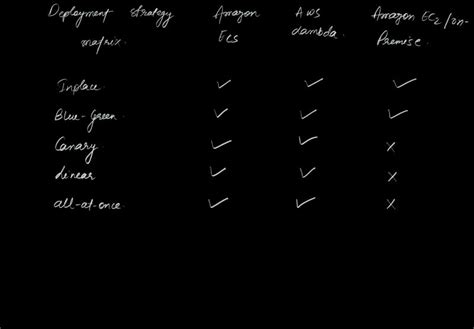 Deployment Strategy matrix. Amazon ECS AWS Lambda Amazon EC2/on-Premise.
Inplace ✓ ✓ ✓
Blue-Green ✓ ✓ ✓
Canary ✓ ✓ ✗
Linear ✓ ✓ ✗
all-at-once. ✓ ✓ ✗